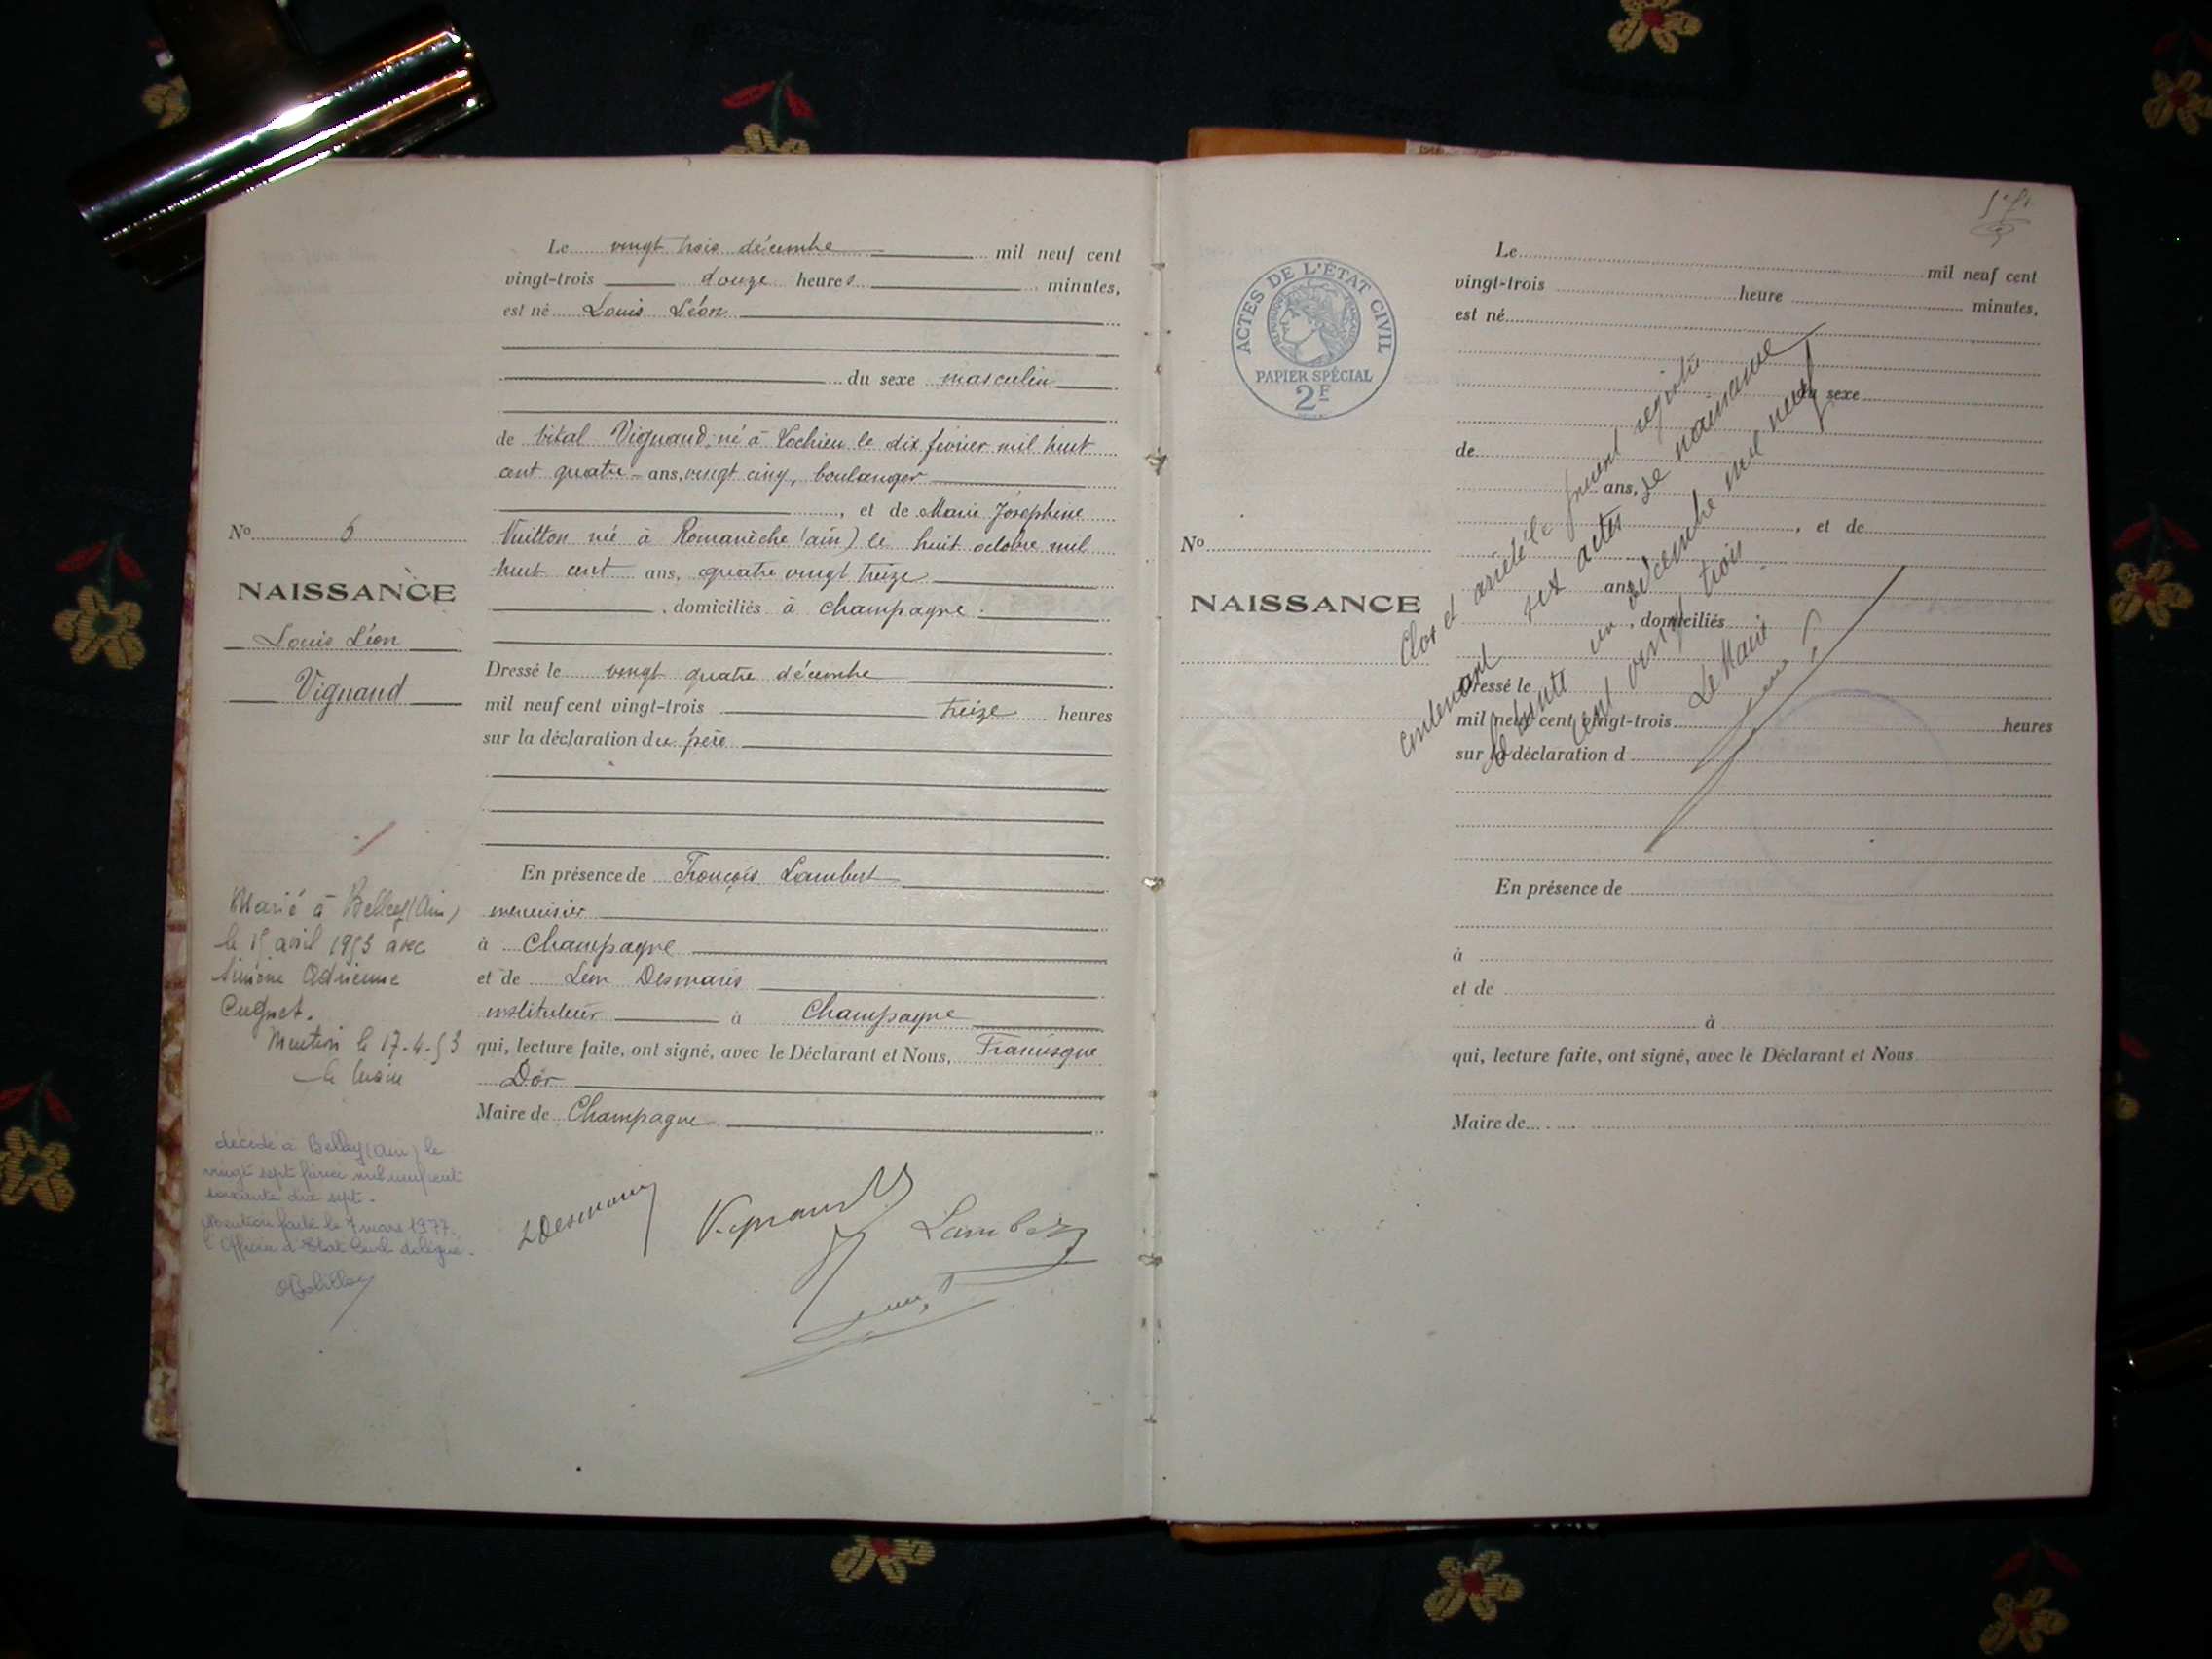 Le vingt trois décembre mil neuf cent
vingt-trois douze heures minutes,
est né Louis Léon
du sexe masculin
de Vital Vignaud, né à Lochieu le dix février mil huit
cent quatre - ans, vingt cinq, boulanger
, et de Marie Joséphine
Vuitton née à Romanèche (ain) le huit octobre mil
huit cent ans, quatre vingt treize
, domiciliés à Champagne.
Dressé le vingt quatre décembre
mil neuf cent vingt-trois treize heures
sur la déclaration du père
En présence de François Lambert
menuisier
à Champagne
et de Léon Desmaris
instituteur à Champagne
qui, lecture faite, ont signé, avec le Déclarant et Nous, Francisque
Dor
Maire de Champagne
Vignaud
Lambert
No 6
NAISSANCE
Louis Léon
Vignaud
Marié à Belley (Ain)
le avril 1953 avec
Simone Adrienne
Cugnet.
Mention le 17-4-53
Le Maire
décédé à Belley (Ain) le
vingt sept février mil neuf cent
soixante dix sept.
Mention faite le 7 mars 1977.
l'Officier d'Etat Civil délégué.
ACTES DE L'ÉTAT CIVIL
PAPIER SPÉCIAL
2F
No
NAISSANCE
Le mil neuf cent
vingt-trois heure minutes,
est né
du sexe
de
ans,
, et de
ans,
, domiciliés
Dressé le
mil neuf cent vingt-trois heures
sur la déclaration d
En présence de
à
et de
à
qui, lecture faite, ont signé, avec le Déclarant et Nous
Maire de
Clos et arrêté le présent registre
contenant six actes de naissance
le trente un décembre mil neuf
cent vingt trois.
Le Maire